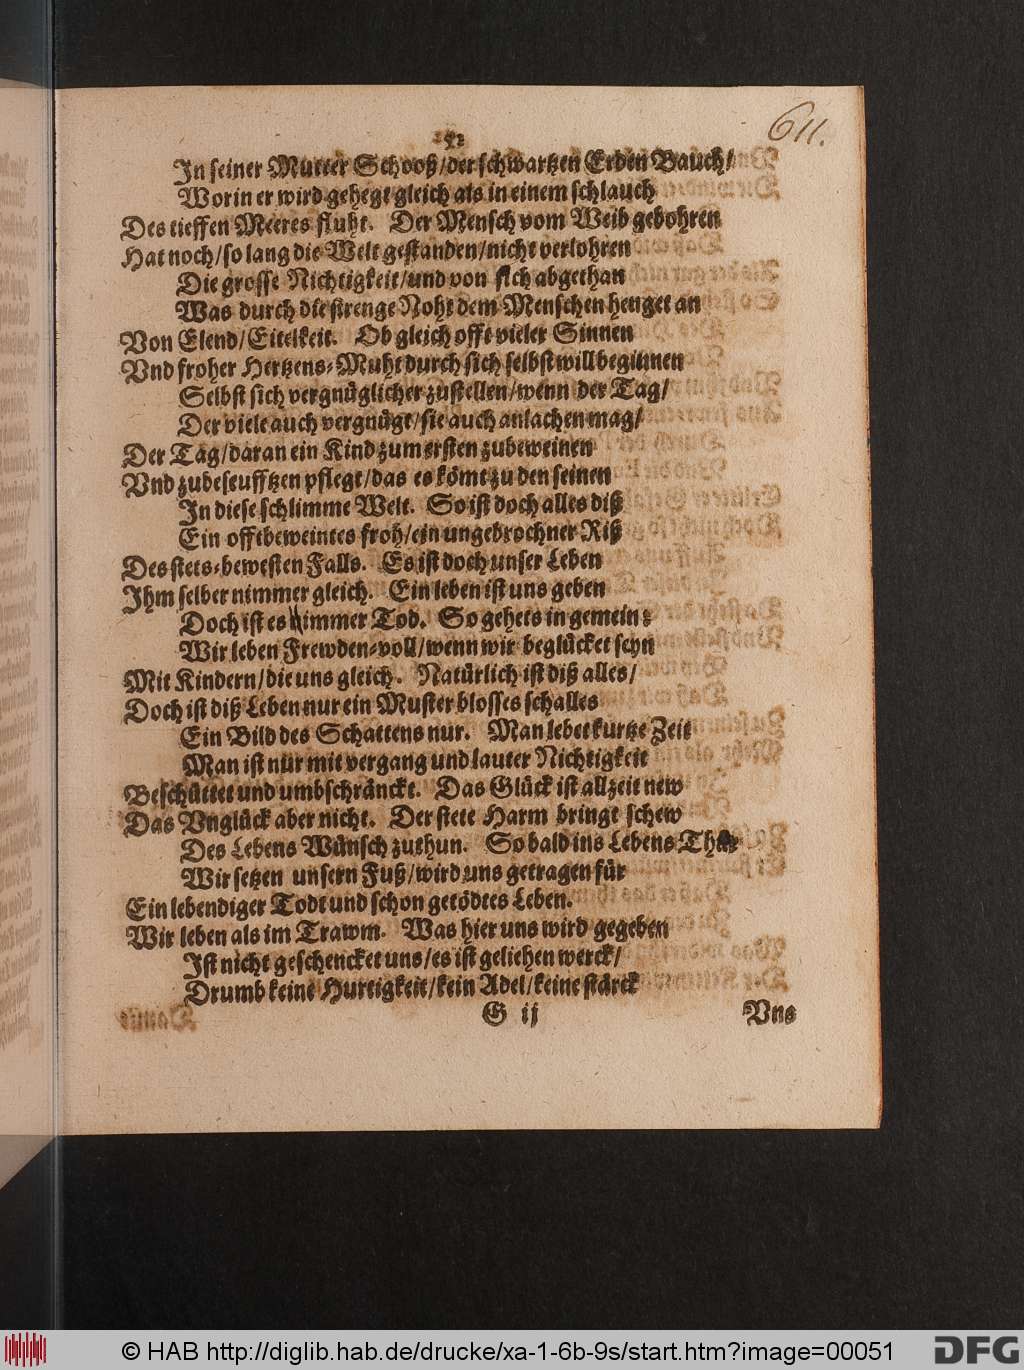 611.
In seiner Mutter Schooß/der schwartzen Erden Bauch/
Worin er wird gehegt gleich als in einem schlauch
Des tieffen Meeres fluht. Der Mensch vom Weib gebohren
Hat noch/so lang die Welt gestanden/nicht verlohren
Die grosse Nichtigkeit/und von sich abgethan
Was durch die strenge Noht dem Menschen henget an
Von Elend/Eitelkeit. Ob gleich offt vieler Sinnen
Vnd froher Hertzens-Muht durch sich selbst will beginnen
Selbst sich vergnüglicher zustellen/wenn der Tag/
Der viele auch vergnügt/sie auch anlachen mag/
Der Tag/daran ein Kind zum ersten zubeweinen
Vnd zubeseufftzen pflegt/das es kömt zu den seinen
In diese schlimme Welt. So ist doch alles diß
Ein offtbeweintes froh/ein ungebrochner Riß
Des stets-bewesten Falls. Es ist doch unser Leben
Ihm selber nimmer gleich. Ein leben ist uns geben
Doch ist es nimmer Tod. So gehets in gemein:
Wir leben Frewden-voll/wenn wir beglücket seyn
Mit Kindern/die uns gleich. Natürlich ist diß alles/
Doch ist diß Leben nur ein Muster blosses schalles
Ein Bild des Schattens nur. Man lebet kurtze Zeit
Man ist nur mit vergang und lauter Nichtigkeit
Beschüttet und umbschränckt. Das Glück ist allzeit new
Das Vnglück aber nicht. Der stete Harm bringt schew
Des Lebens Wünsch zuthun. So bald ins Lebens Thür
Wir setzen unsern Fuß/wird uns getragen für
Ein lebendiger Todt und schon getödtes Leben.
Wir leben als im Trawm. Was hier uns wird gegeben
Ist nicht geschencket uns/es ist geliehen werck/
Drumb keine Hurtigkeit/kein Adel/keine stärck
G ij Vns
© HAB http://diglib.hab.de/drucke/xa-1-6b-9s/start.htm?image=00051
DFG